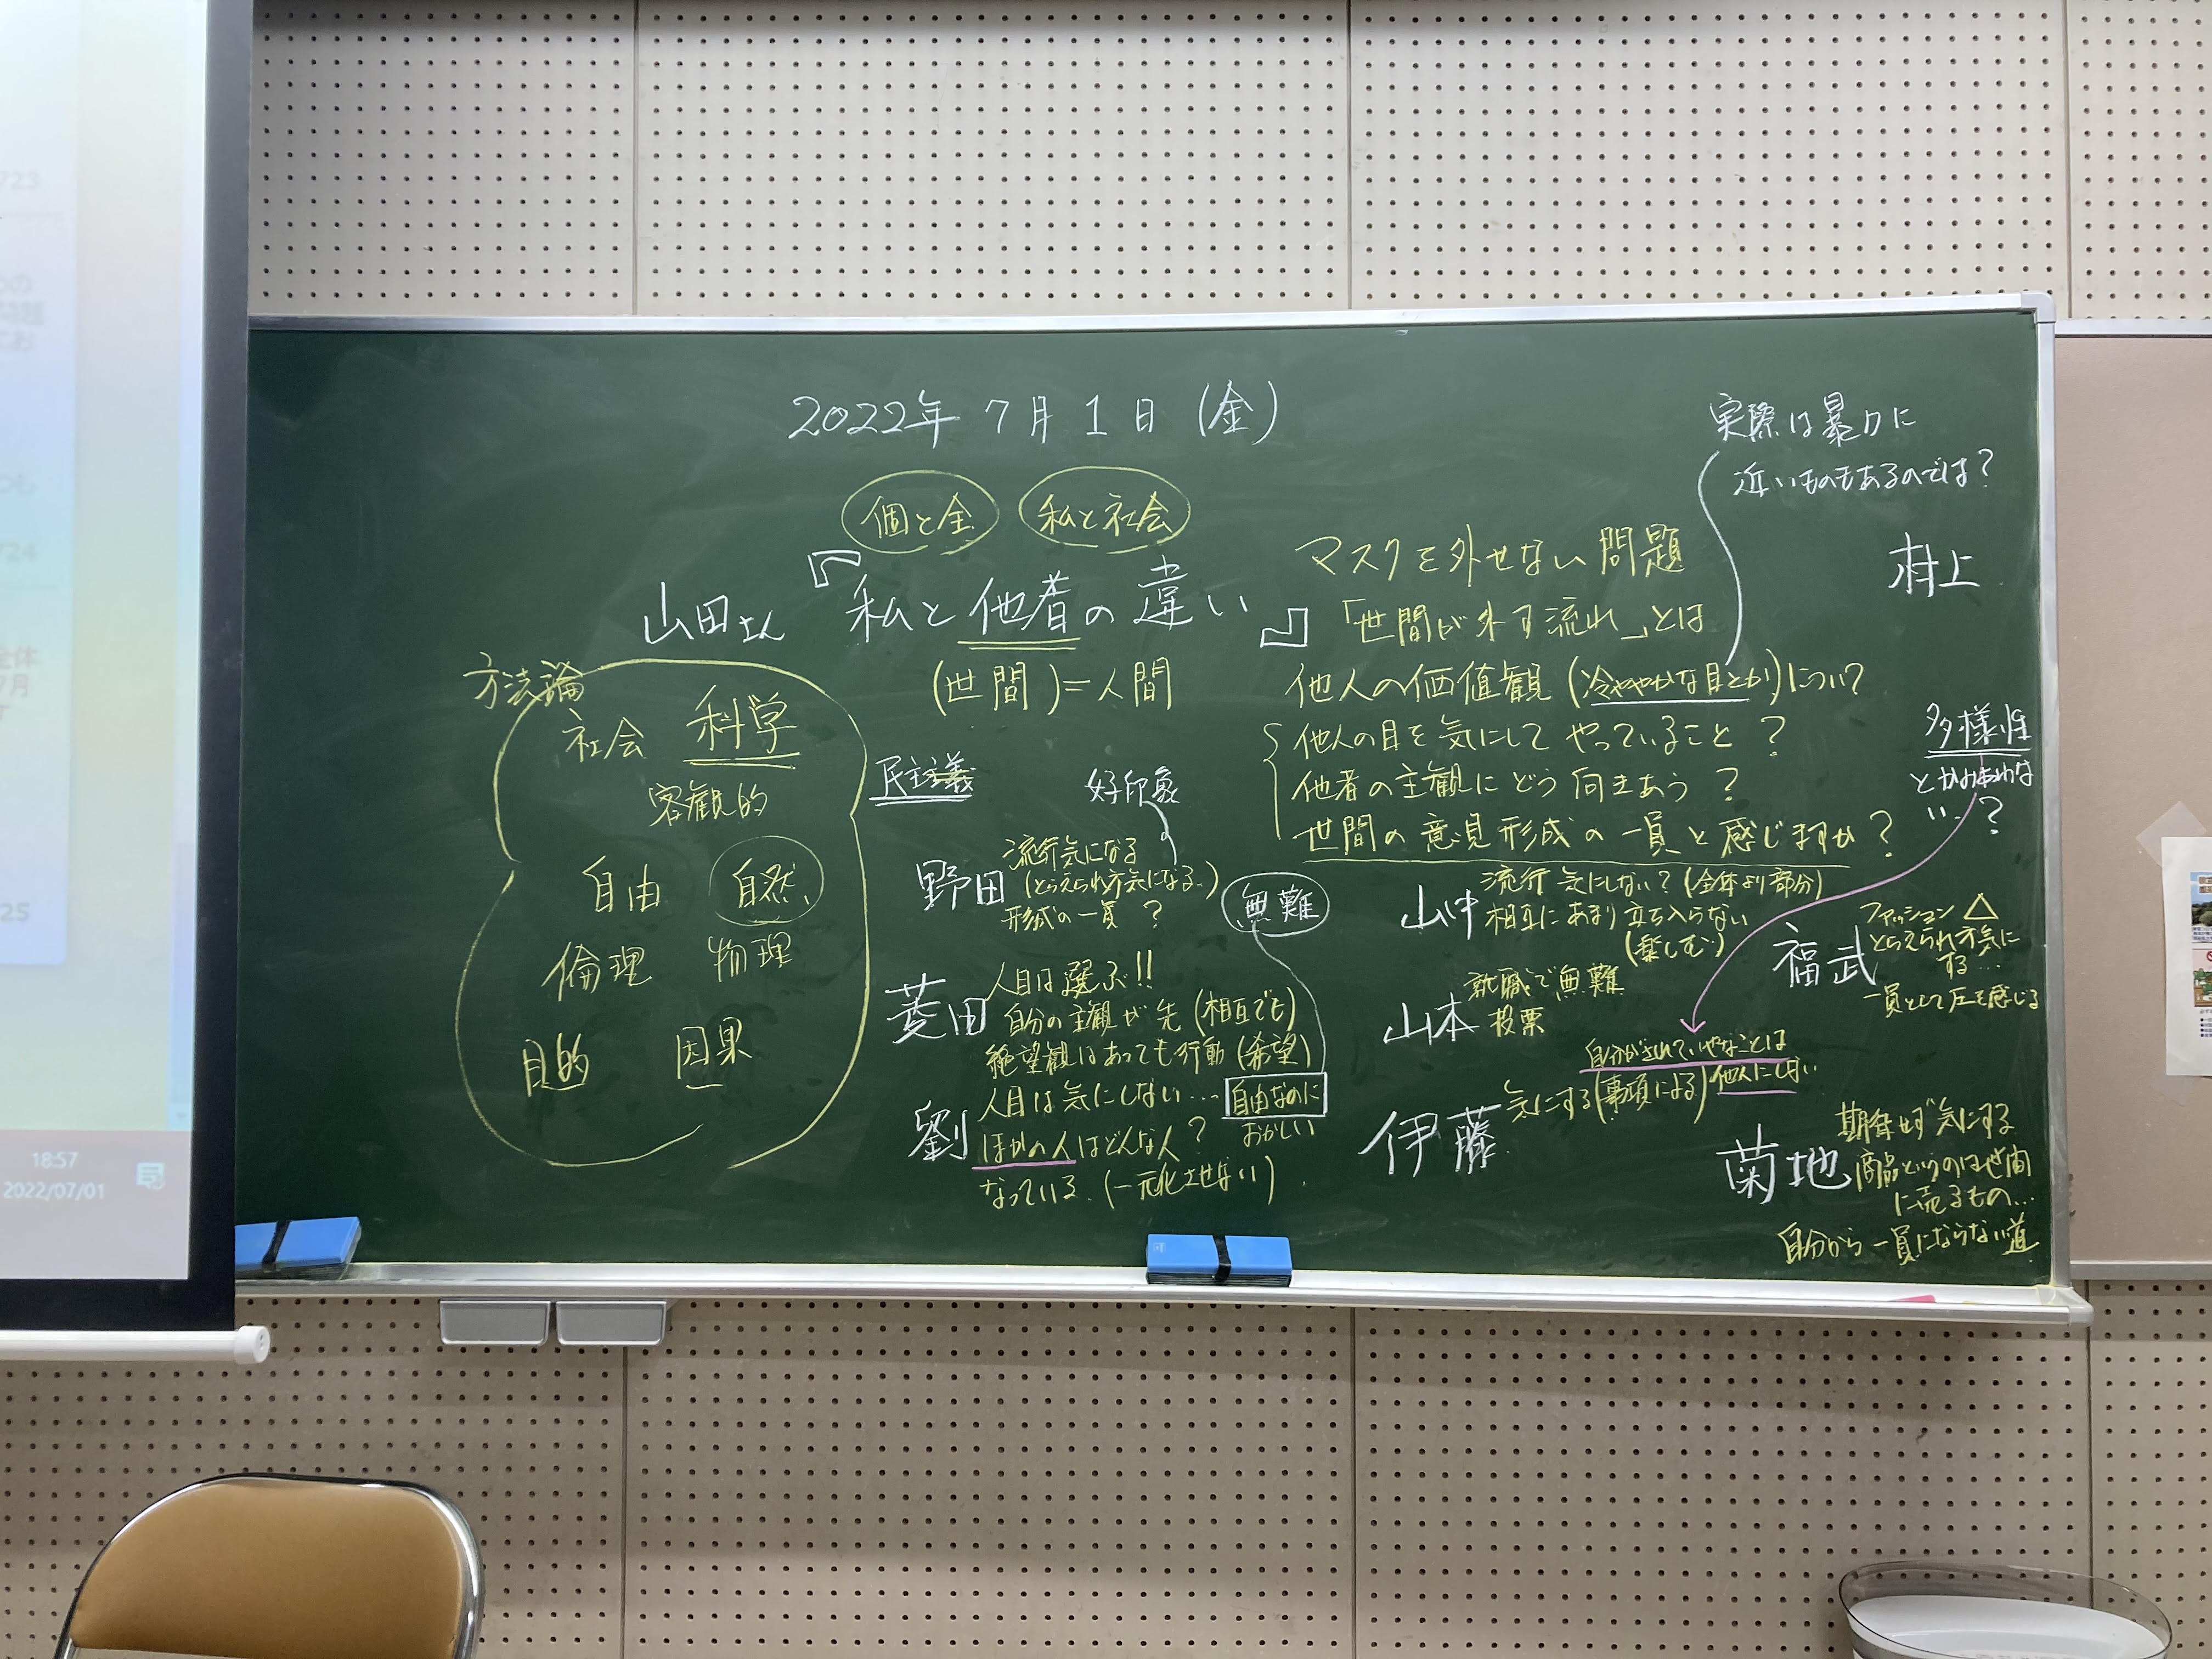 2022年 7月 1日 (金)
個と全
私と社会
山田さん
『私と他者の違い』
(世間)=人間
方法論
社会 科学
客観的
自由 自然
倫理 物理
目的 因果
民主主義
好印象
実際は暴力に
近いものもあるのでは?
村上
マスクを外せない問題
「世間が外す流れ」とは
他人の価値観(冷ややかな目とか)について
他人の目を気にしてやっていること?
他者の主観にどう向きあう?
世間の意見形成の一員と感じますか?
多様性
とかみあわな
い..?
野田
流行気になる
(とらえられ方気になる..)
形成の一員 ?
無難
菱田
人目は選ぶ!!
自分の主観が先(相互でも)
絶望観はあっても行動(希望)
劉
人目は気にしない...
自由なのに
おかしい
ほかの人はどんな人?
なっている.(一元化させない)
山中
流行 気にしない?(全体より部分)
相互にあまり立ち入らない
(楽しむ)
山本
就職で無難
投票
福武
ファッション △
とらえられ方気に
する...
一員として圧を感じる
自分がされていやなことは
他人にしない
伊藤
気にする(事項による)
菊地
期待せず気にする
商品というのは世間
に売るもの...
自分から一員にならない道
723
724
25
全体
7月
18:57
2022/07/01